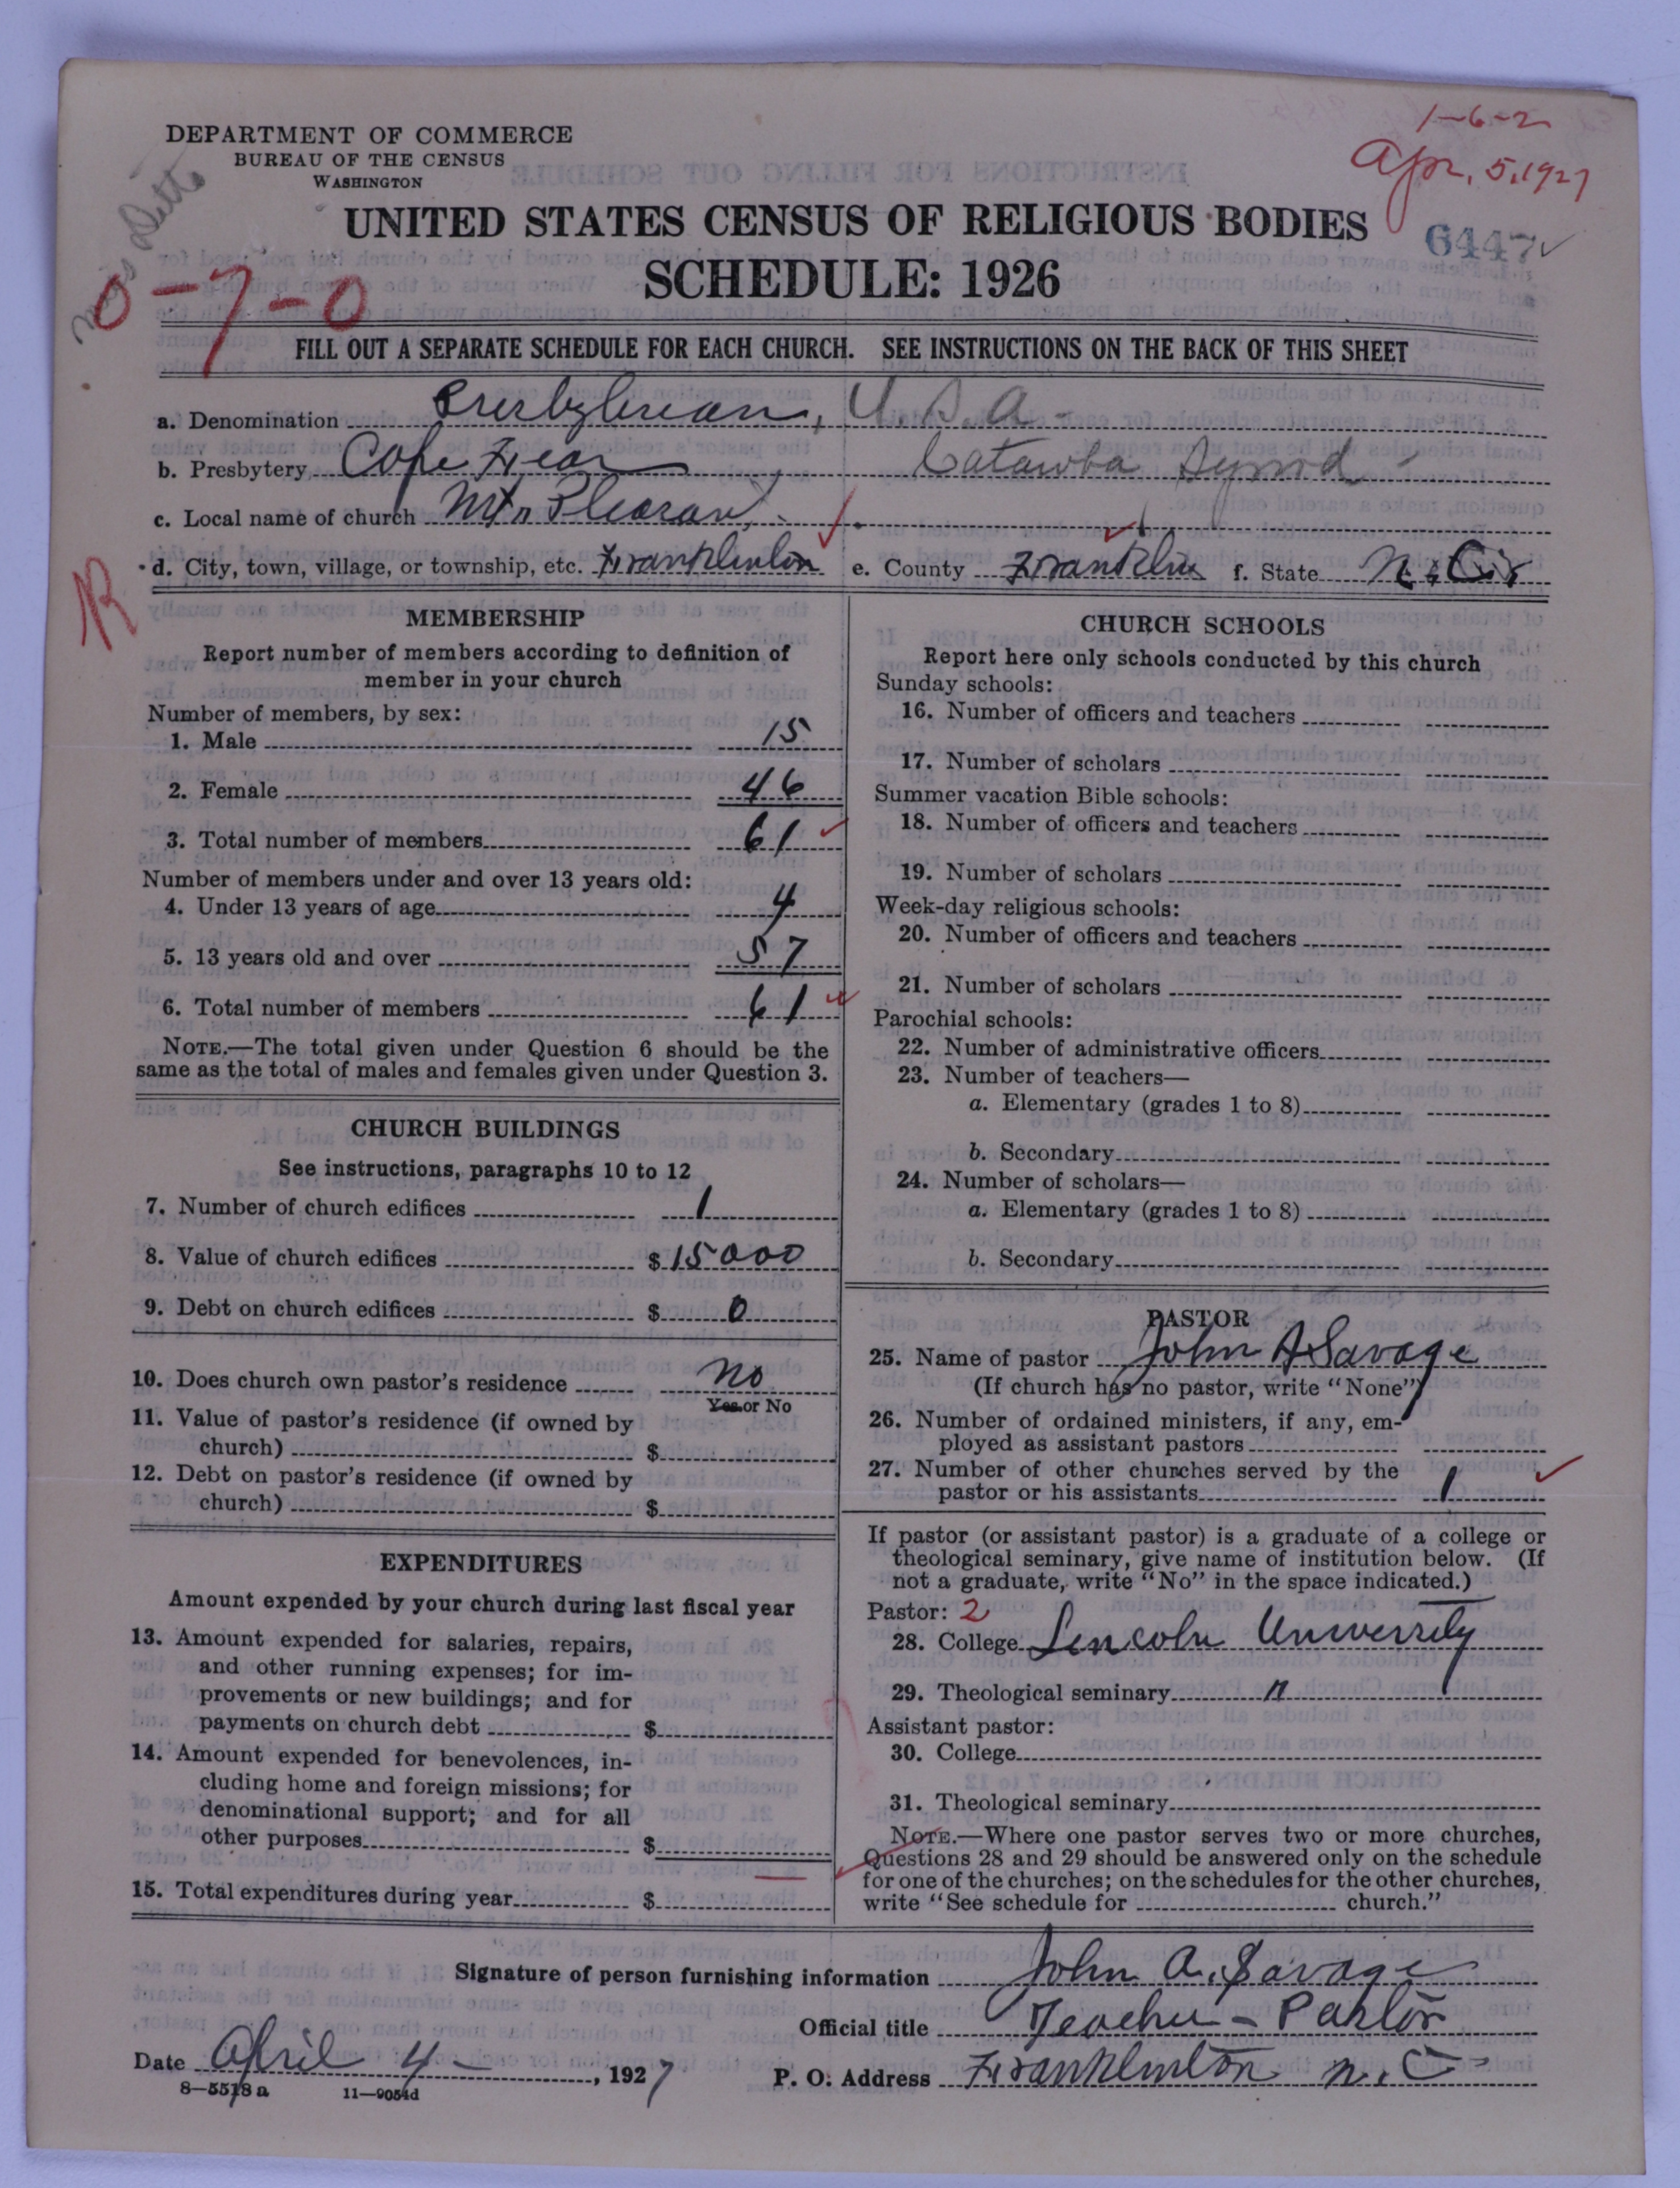 1-6-2
Apr. 5, 1927
DEPARTMENT OF COMMERCE
BUREAU OF THE CENSUS
WASHINGTON
UNITED STATES CENSUS OF RELIGIOUS BODIES
6447
SCHEDULE: 1926
0-7-0
FILL OUT A SEPARATE SCHEDULE FOR EACH CHURCH. SEE INSTRUCTIONS ON THE BACK OF THIS SHEET
a. Denomination Presbyterian, U.S.A.
b. Presbytery Cape Fear Catawba Synod
c. Local name of church Mt Pleasant
d. City, town, village, or township, etc. Franklinton e. County Franklin f. State N.C.
MEMBERSHIP
Report number of members according to definition of
member in your church
Number of members, by sex:
1. Male 15
2. Female 46
3. Total number of members 61
Number of members under and over 13 years old:
4. Under 13 years of age 4
5. 13 years old and over 57
6. Total number of members 61
NOTE.—The total given under Question 6 should be the
same as the total of males and females given under Question 3.
CHURCH BUILDINGS
See instructions, paragraphs 10 to 12
7. Number of church edifices 1
8. Value of church edifices $ 15000
9. Debt on church edifices $ 0
10. Does church own pastor's residence No
Yes or No
11. Value of pastor's residence (if owned by
church) $
12. Debt on pastor's residence (if owned by
church) $
EXPENDITURES
Amount expended by your church during last fiscal year
13. Amount expended for salaries, repairs,
and other running expenses; for im-
provements or new buildings; and for
payments on church debt $
14. Amount expended for benevolences, in-
cluding home and foreign missions; for
denominational support; and for all
other purposes $
15. Total expenditures during year $
CHURCH SCHOOLS
Report here only schools conducted by this church
Sunday schools:
16. Number of officers and teachers
17. Number of scholars
Summer vacation Bible schools:
18. Number of officers and teachers
19. Number of scholars
Week-day religious schools:
20. Number of officers and teachers
21. Number of scholars
Parochial schools:
22. Number of administrative officers
23. Number of teachers—
a. Elementary (grades 1 to 8)
b. Secondary
24. Number of scholars—
a. Elementary (grades 1 to 8)
b. Secondary
PASTOR
25. Name of pastor John A Savage
(If church has no pastor, write "None")
26. Number of ordained ministers, if any, em-
ployed as assistant pastors
27. Number of other churches served by the
pastor or his assistants 1
If pastor (or assistant pastor) is a graduate of a college or
theological seminary, give name of institution below. (If
not a graduate, write "No" in the space indicated.)
Pastor: 2
28. College Lincoln University
29. Theological seminary "
Assistant pastor:
30. College
31. Theological seminary
NOTE.—Where one pastor serves two or more churches,
Questions 28 and 29 should be answered only on the schedule
for one of the churches; on the schedules for the other churches,
write "See schedule for church."
Signature of person furnishing information John A. Savage
Official title Teacher - Pastor
Date April 4 -, 1927
P. O. Address Franklinton N.C.
8-5518 a 11-9054d